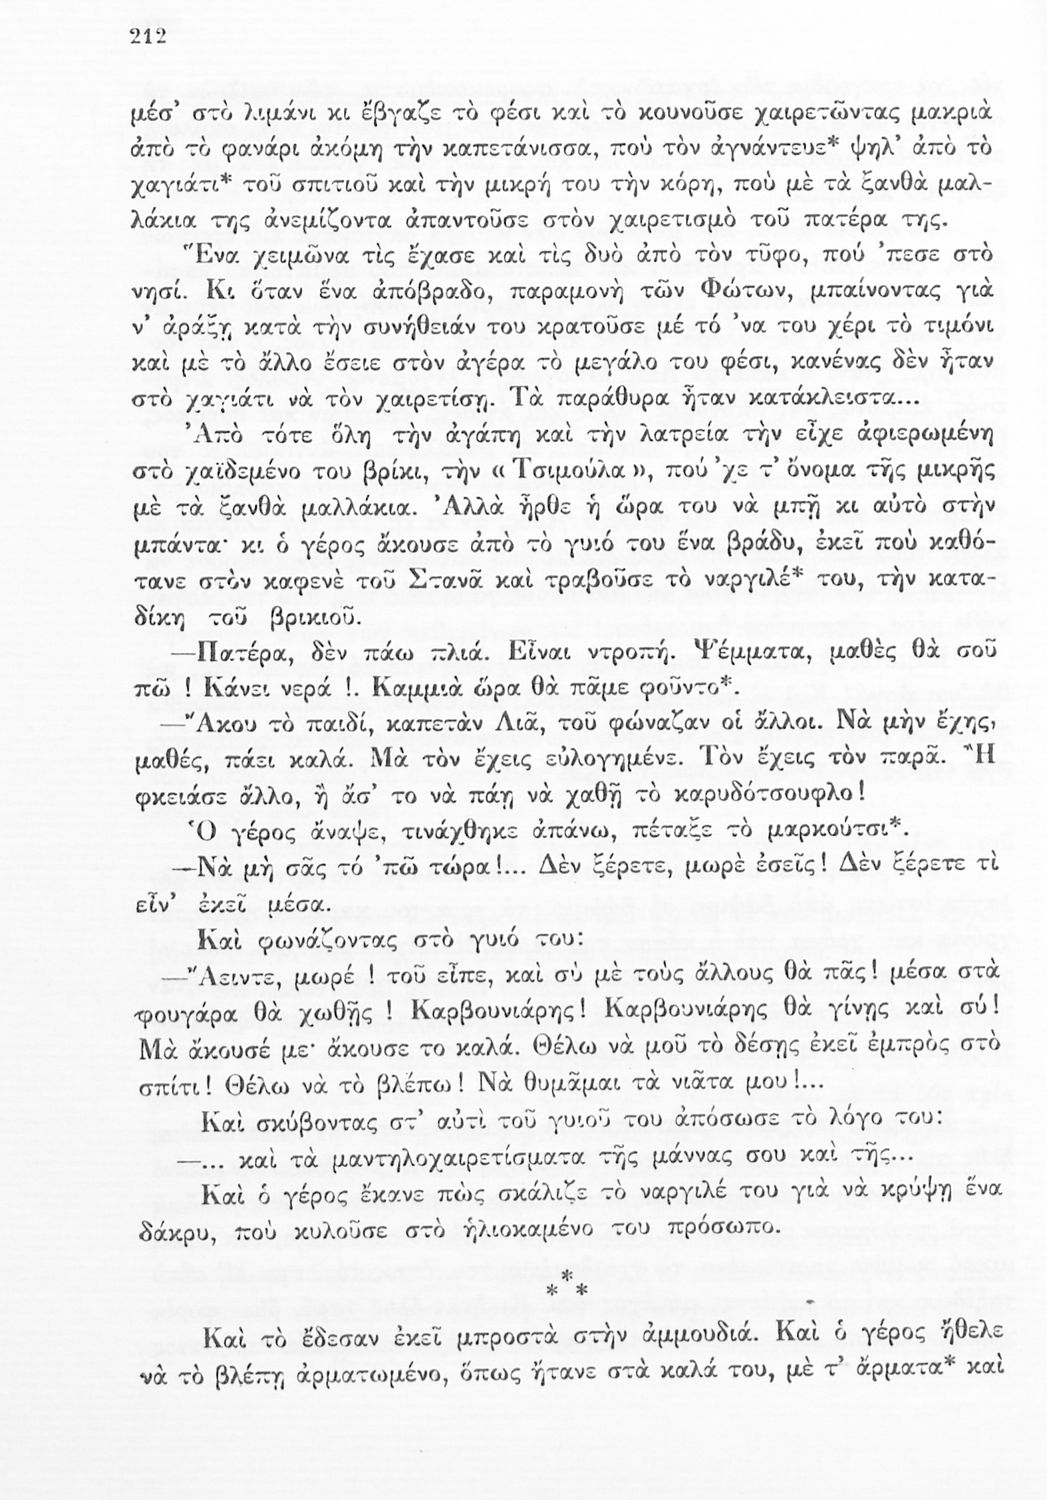 212
μέσ’ στὸ λιμάνι κι ἔβγαζε τὸ φέσι καὶ τὸ κουνοῦσε χαιρετῶντας μακριὰ
ἀπὸ τὸ φανάρι ἀκόμη τὴν καπετάνισσα, ποὺ τὸν ἀγνάντευε* ψηλ’ ἀπὸ τὸ
χαγιάτι* τοῦ σπιτιοῦ καὶ τὴν μικρή του τὴν κόρη, ποὺ μὲ τὰ ξανθὰ μαλ-
λάκια της ἀνεμίζοντα ἀπαντοῦσε στὸν χαιρετισμὸ τοῦ πατέρα της.
Ἕνα χειμῶνα τὶς ἔχασε καὶ τὶς δυὸ ἀπὸ τὸν τῦφο, πού ’πεσε στὸ
νησί. Κι ὅταν ἕνα ἀπόβραδο, παραμονὴ τῶν Φώτων, μπαίνοντας γιὰ
ν’ ἀράξῃ κατὰ τὴν συνήθειάν του κρατοῦσε μέ τό ’να του χέρι τὸ τιμόνι
καὶ μὲ τὸ ἄλλο ἔσειε στὸν ἀγέρα τὸ μεγάλο του φέσι, κανένας δὲν ἦταν
στὸ χαγιάτι νὰ τὸν χαιρετίσῃ. Τὰ παράθυρα ἦταν κατάκλειστα...
Ἀπὸ τότε ὅλη τὴν ἀγάπη καὶ τὴν λατρεία τὴν εἶχε ἀφιερωμένη
στὸ χαϊδεμένο του βρίκι, τὴν «Τσιμούλα», πού ’χε τ’ ὄνομα τῆς μικρῆς
μὲ τὰ ξανθὰ μαλλάκια. Ἀλλὰ ἦρθε ἡ ὥρα του νὰ μπῇ κι αὐτὸ στὴν
μπάντα· κι ὁ γέρος ἄκουσε ἀπὸ τὸ γυιό του ἕνα βράδυ, ἐκεῖ ποὺ καθό-
τανε στὸν καφενὲ τοῦ Στανᾶ καὶ τραβοῦσε τὸ ναργιλέ* του, τὴν κατα-
δίκη τοῦ βρικιοῦ.
—Πατέρα, δὲν πάω πλιά. Εἶναι ντροπή. Ψέμματα, μαθὲς θὰ σοῦ
πῶ ! Κάνει νερά !. Καμμιὰ ὥρα θὰ πᾶμε φοῦντο*.
—Ἄκου τὸ παιδί, καπετὰν Λιᾶ, τοῦ φώναζαν οἱ ἄλλοι. Νὰ μὴν ἔχῃς,
μαθές, πάει καλά. Μὰ τὸν ἔχεις εὐλογημένε. Τὸν ἔχεις τὸν παρᾶ. Ἢ
φκειάσε ἄλλο, ἢ ἄσ’ το νὰ πάῃ νὰ χαθῇ τὸ καρυδότσουφλο!
Ὁ γέρος ἄναψε, τινάχθηκε ἀπάνω, πέταξε τὸ μαρκούτσι*.
—Νὰ μὴ σᾶς τό ’πῶ τώρα!... Δὲν ξέρετε, μωρὲ ἐσεῖς! Δὲν ξέρετε τὶ
εἶν’ ἐκεῖ μέσα.
Καὶ φωνάζοντας στὸ γυιό του:
—Ἄειντε, μωρέ ! τοῦ εἶπε, καὶ σὺ μὲ τοὺς ἄλλους θὰ πᾶς! μέσα στὰ
φουγάρα θὰ χωθῇς ! Καρβουνιάρης! Καρβουνιάρης θὰ γίνῃς καὶ σύ!
Μὰ ἄκουσέ με· ἄκουσε το καλά. Θέλω νὰ μοῦ τὸ δέσῃς ἐκεῖ ἐμπρὸς στὸ
σπίτι! Θέλω νὰ τὸ βλέπω! Νὰ θυμᾶμαι τὰ νιᾶτα μου!...
Καὶ σκύβοντας στ’ αὐτὶ τοῦ γυιοῦ του ἀπόσωσε τὸ λόγο του:
—... καὶ τὰ μαντηλοχαιρετίσματα τῆς μάννας σου καὶ τῆς...
Καὶ ὁ γέρος ἔκανε πὼς σκάλιζε τὸ ναργιλέ του γιὰ νὰ κρύψῃ ἕνα
δάκρυ, ποὺ κυλοῦσε στὸ ἡλιοκαμένο του πρόσωπο.
*
* *
Καὶ τὸ ἔδεσαν ἐκεῖ μπροστὰ στὴν ἀμμουδιά. Καὶ ὁ γέρος ἤθελε
νὰ τὸ βλέπῃ ἀρματωμένο, ὅπως ἤτανε στὰ καλά του, μὲ τ’ ἄρματα* καὶ